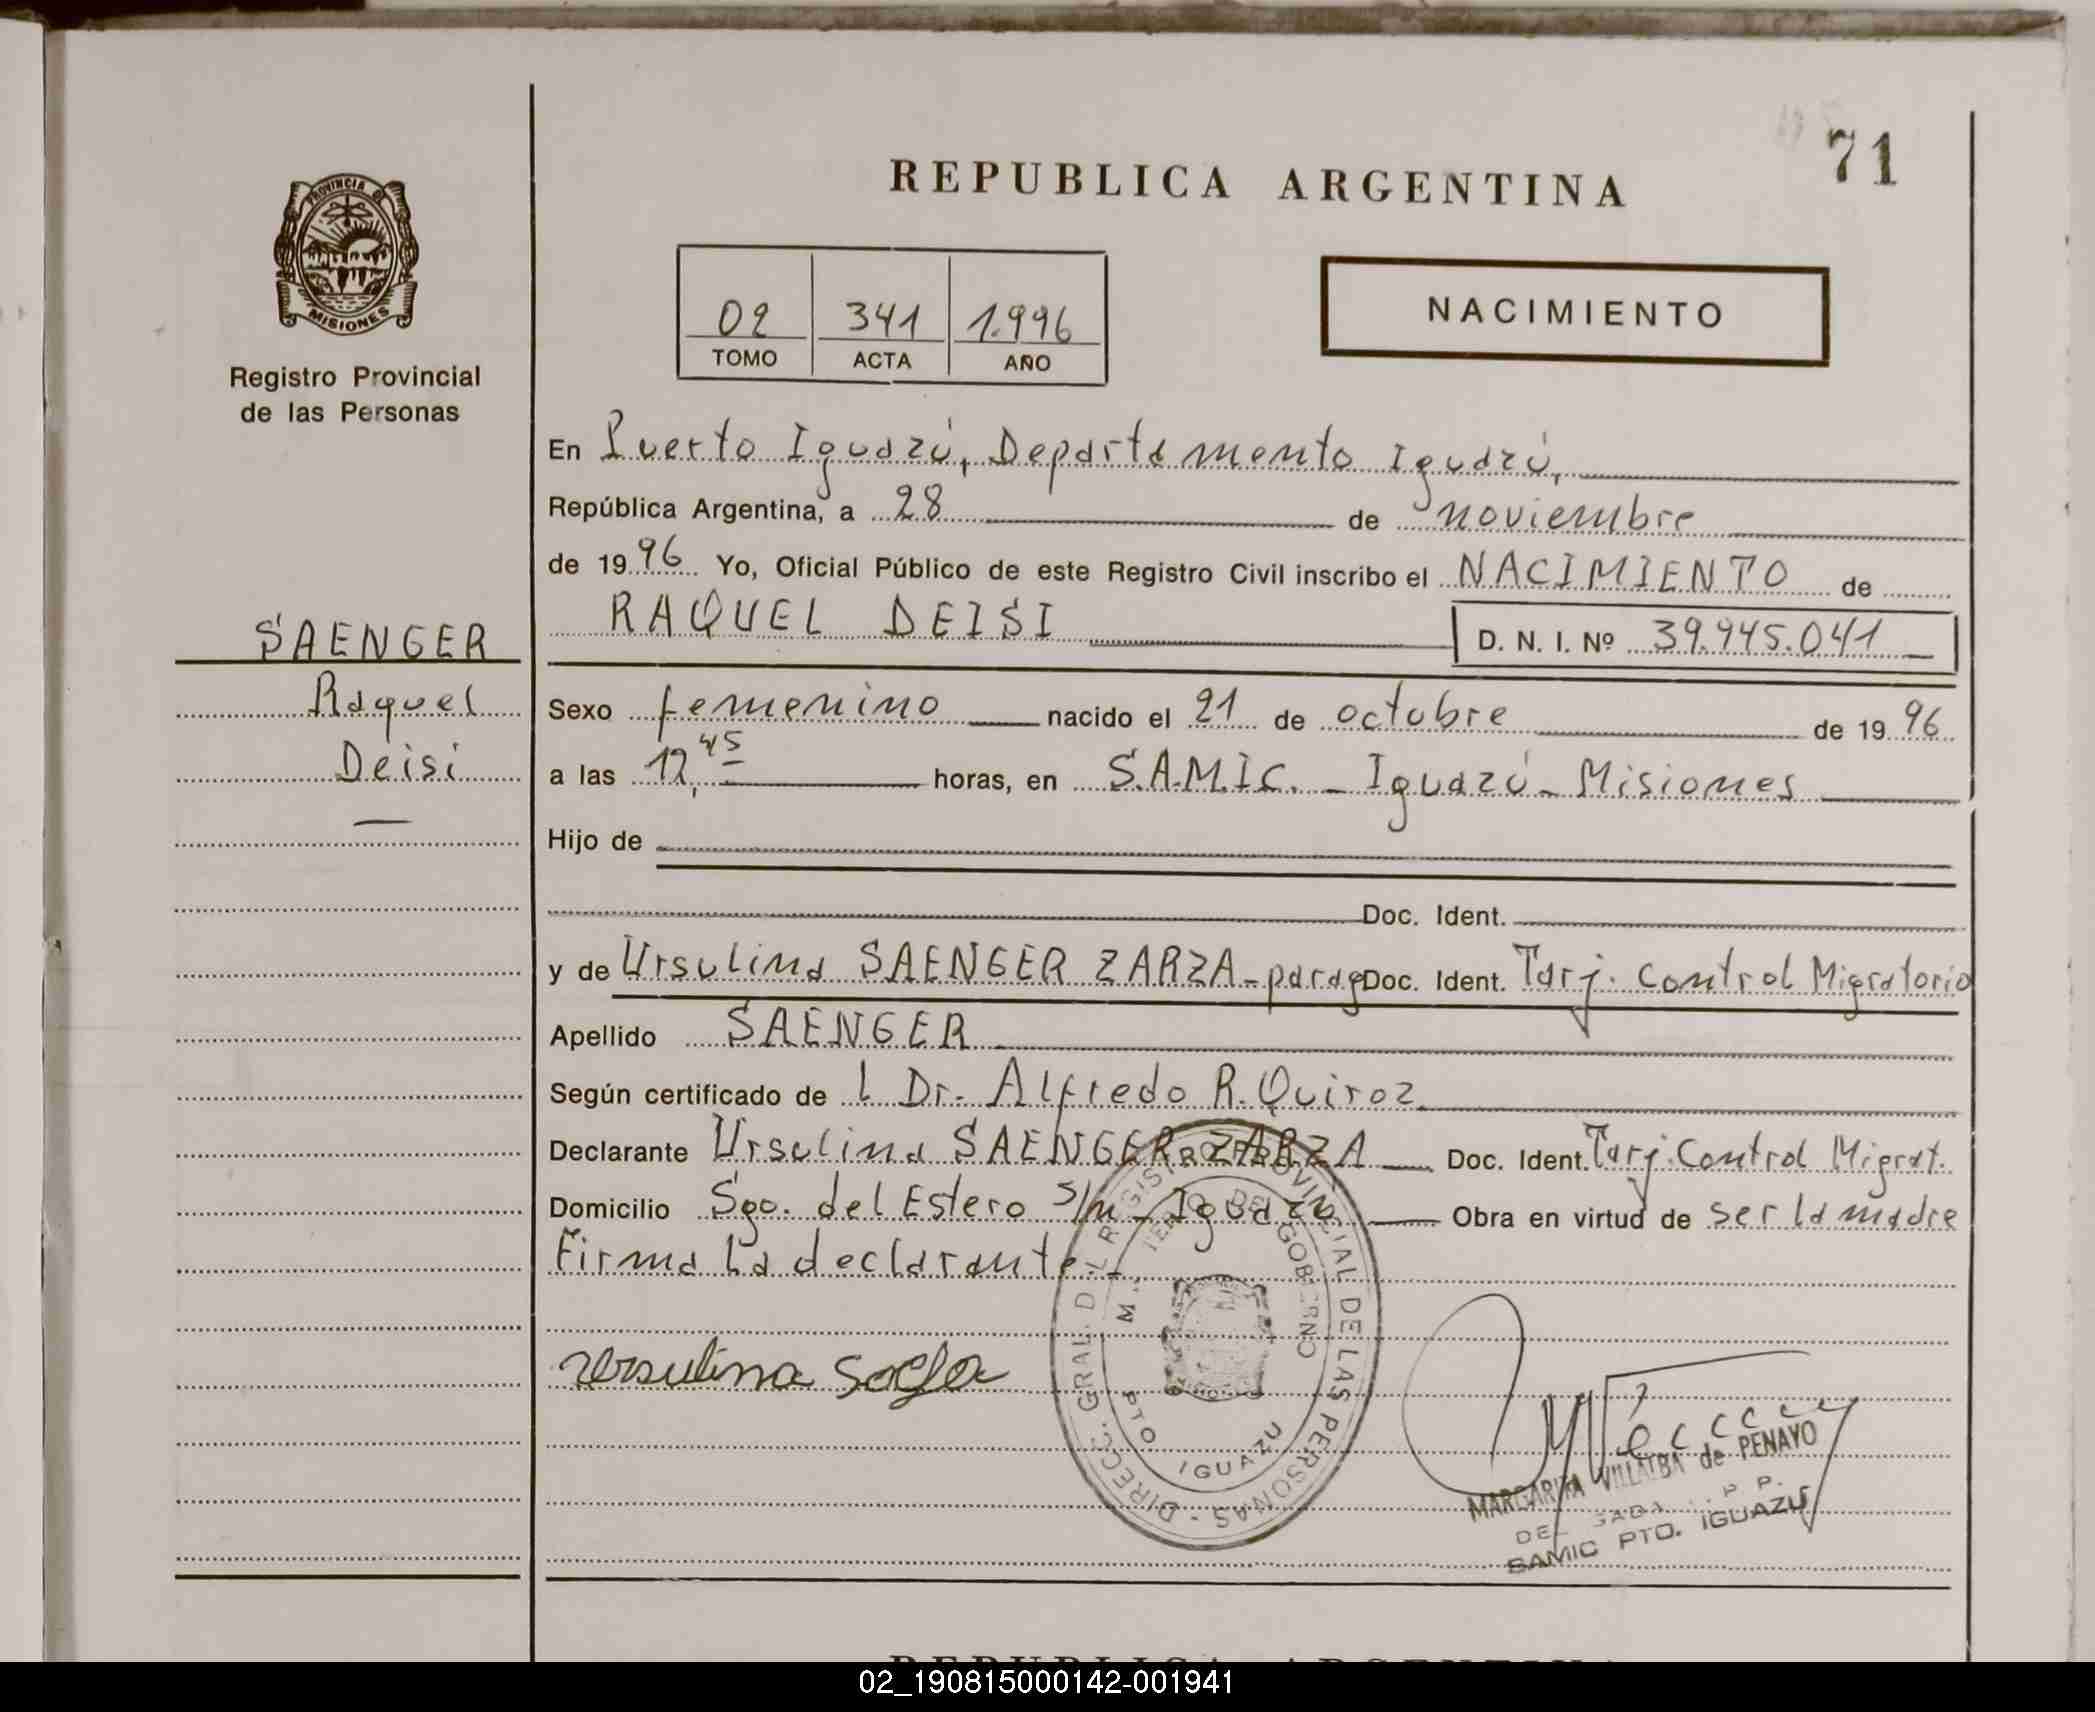 71
REPUBLICA ARGENTINA
PROVINCIA DE
MISIONES
Registro Provincial
de las Personas
02 341 1.996
TOMO ACTA AÑO
NACIMIENTO
En Puerto Iguazú, Departamento Iguazú,
República Argentina, a 28 de noviembre
de 1996 Yo, Oficial Público de este Registro Civil inscribo el NACIMIENTO de
RAQUEL DEISI D. N. I. Nº 39.945.041
SAENGER
Raquel
Deisi
Sexo femenino nacido el 21 de octubre de 1996
a las 12,45 horas, en S.A.M.I.C. - Iguazú - Misiones
Hijo de
Doc. Ident.
y de Ursulina SAENGER ZARZA - parag Doc. Ident. Tarj. Control Migratorio
Apellido SAENGER
Según certificado de l Dr. Alfredo R. Quiroz
Declarante Ursulina SAENGER ZARZA Doc. Ident. Tarj. Control Migrat.
Domicilio Sgo. del Estero S/n - Iguazú Obra en virtud de ser la madre
Firma la declarante.-
DIRECC. GRAL. DEL REGISTRO PROVINCIAL DE LAS PERSONAS -
DE GOBIERNO
PTO IGUAZU
Ursulina
MARGARITA VILLALBA de PENAYO
SAMIC PTO. IGUAZU
REPUBLICA ARGENTINA
02_190815000142-001941